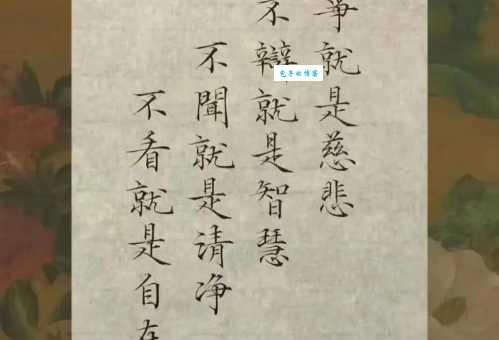 爭就是慈悲
不辯就是智慧
不聞就是清净
不看就是自在